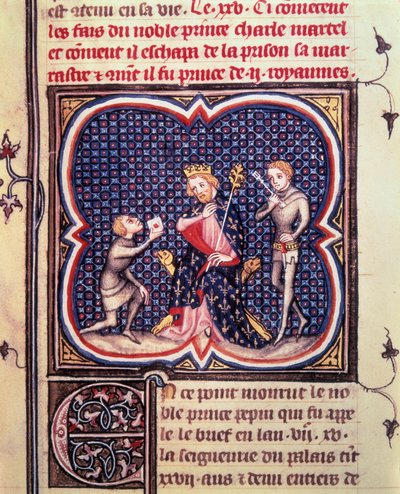 est tenu en sa vie. Le .xxv. Ci cōmencent
les fais du noble prince charle martel
et cōment il eschapa de la prison sa mar-
rastre & cōmt il fu prince de .ii. royaumes.
En ce point mourut le no
ble prince pepin qui fu appe
le le brief en lan .vii. xv.
la seigneurie du palais tīt
xxvii. ans & demi entiers de